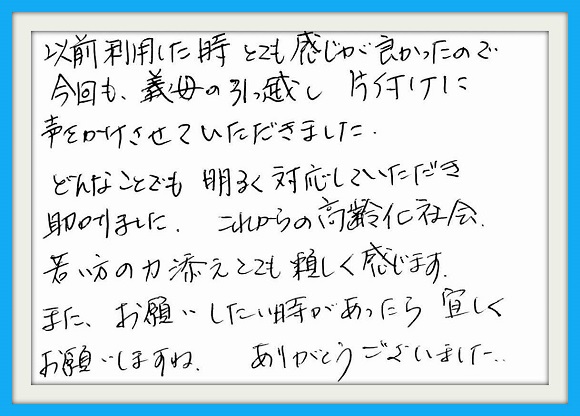 以前利用した時 とても感じが良かったので
今回も、義母の引っ越し 片付けに
声をかけさせていただきました.
どんなことでも 明るく対応していただき
助かりました. これからの高齢化社会.
若い方の力添えとても頼しく感じます.
また、お願いしたい時があったら 宜しく
お願いしますね. ありがとうございました..